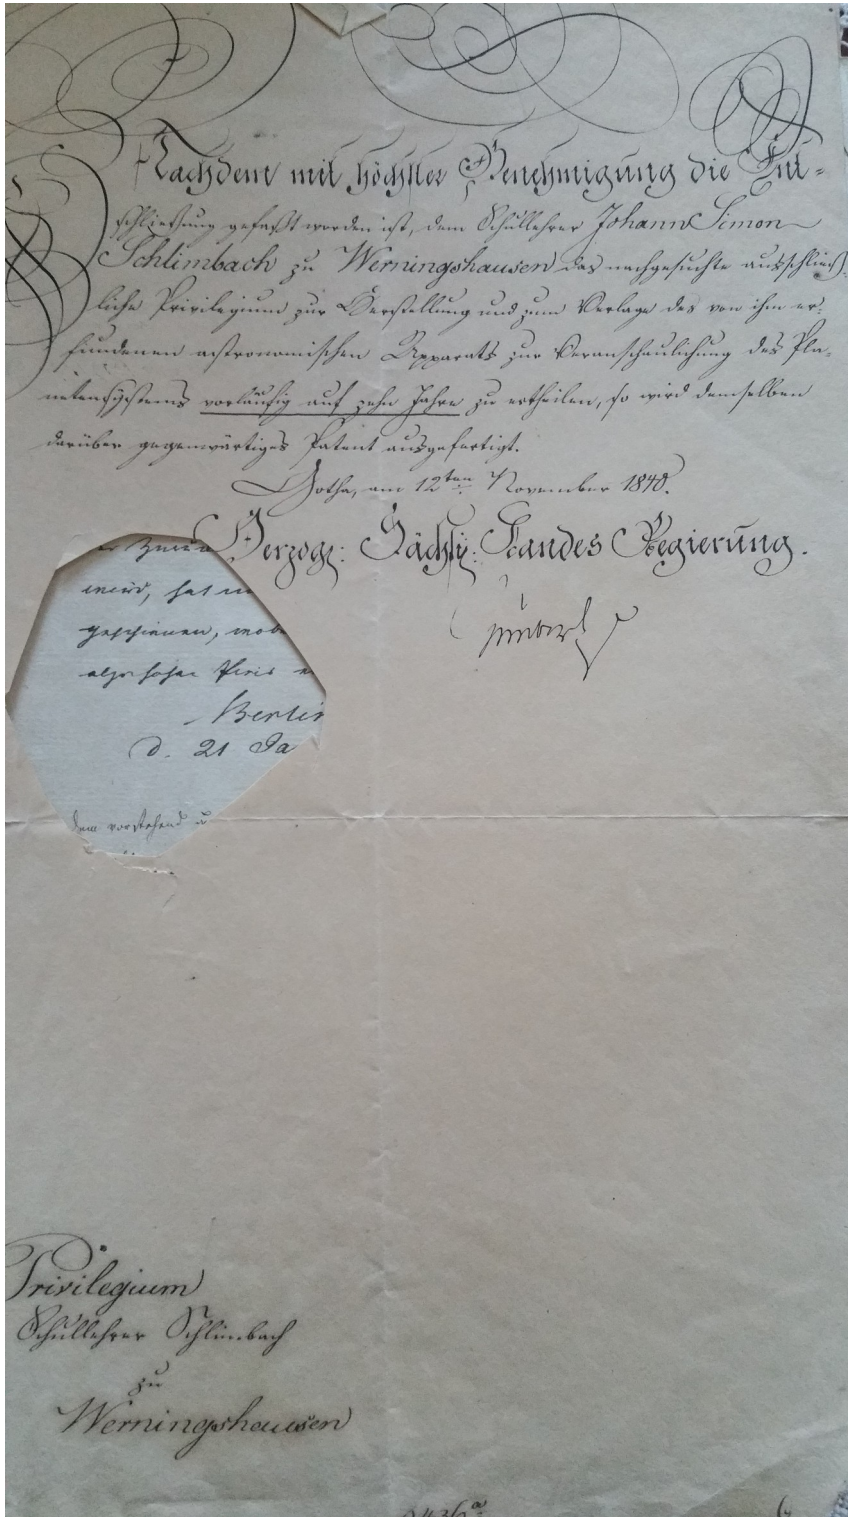 Nachdem mit höchster Genehmigung die Ent-
schließung gefaßt worden ist, dem Schullehrer Johann Simon
Schlimbach zu Werningshausen das nachgesuchte ausschließ-
liche Privilegium zur Herstellung und zum Verlage des von ihm er-
fundenen astronomischen Apparats zur Veranschaulichung des Pla-
netensystems vorläufig auf zehn Jahre zu ertheilen, so wird demselben
darüber gegenwärtiges Patent ausgefertigt.
Gotha, am 12ten November 1840.
Herzogl: Sächs: Landes Regierung.
wird, hat
geschienen,
Preis
Berlin
d. 21 Ja
dem vorstehend
Privilegium
Schullehrer Schlimbach
zu
Werningshausen